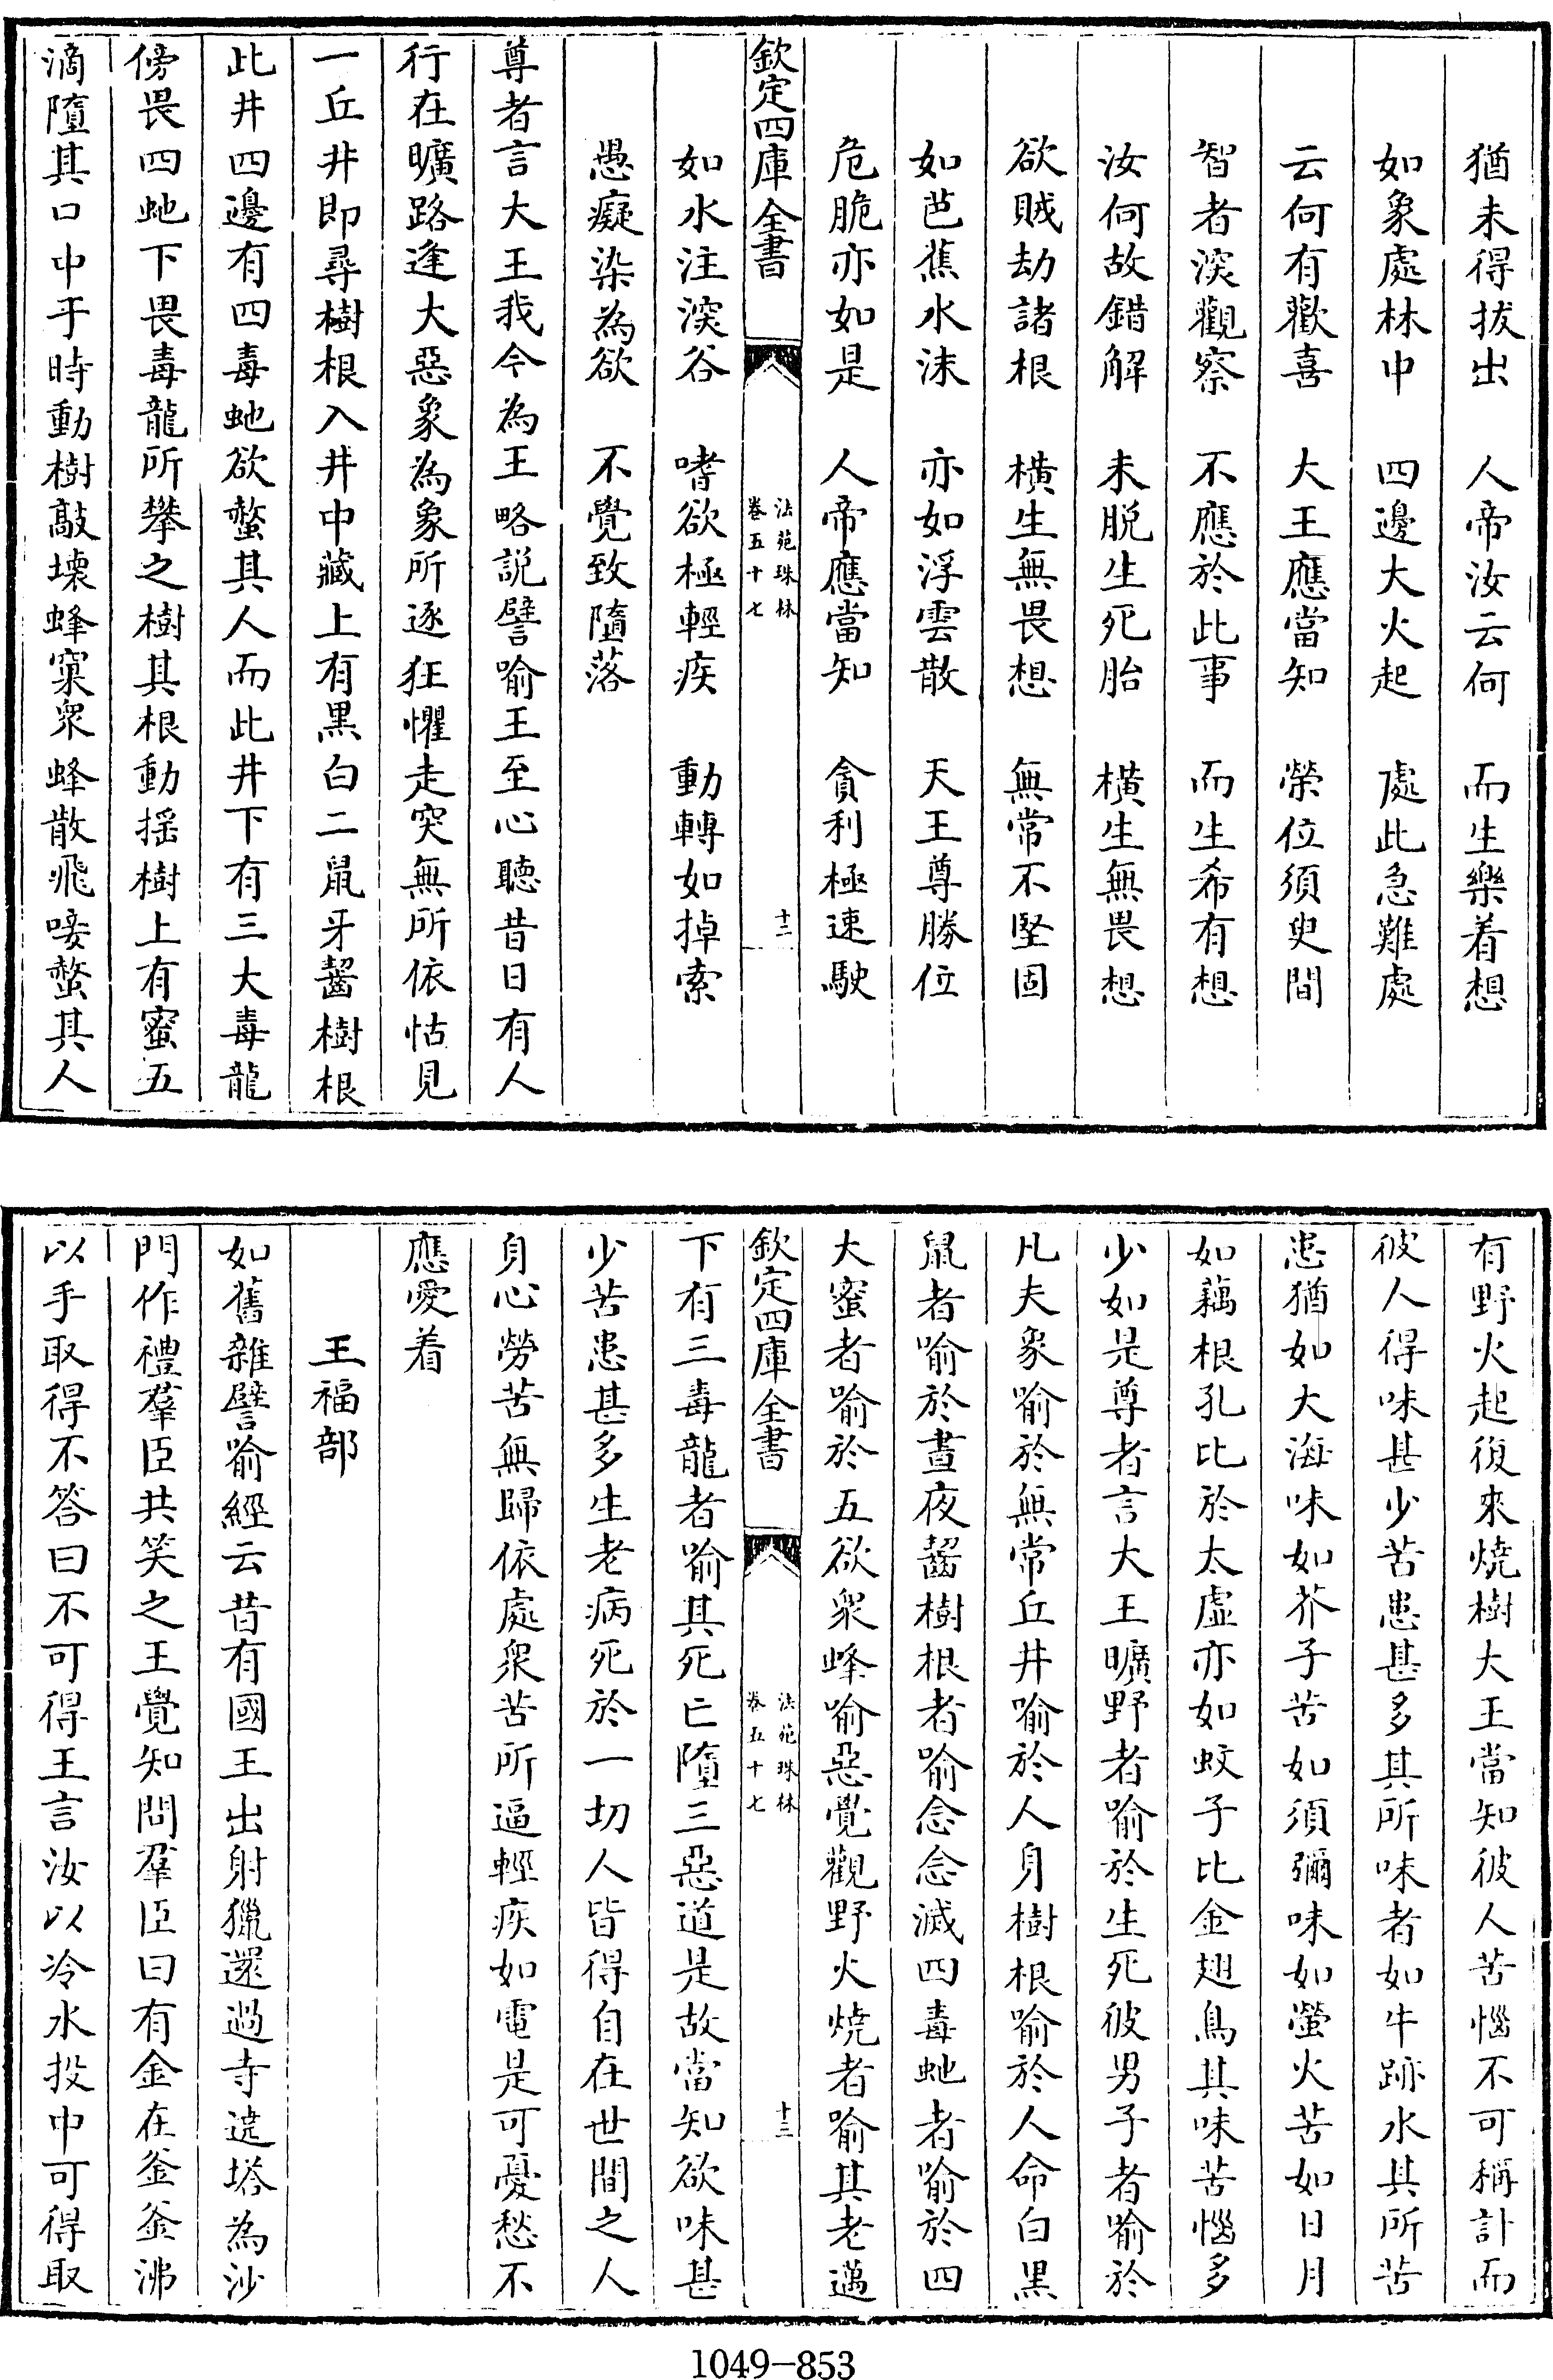 猶未得拔出　人帝汝云何　而生樂着想
如象處林中　四邊大火起　處此急難處
云何有歡喜　大王應當知　榮位須臾間
智者深觀察　不應於此事　而生希有想
汝何故錯解　未脫生死胎　橫生無畏想
欲賊劫諸根　橫生無畏想　無常不堅固
如芭蕉水沫　亦如浮雲散　天王尊勝位
危脆亦如是　人帝應當知　貪利極速駛
欽定四庫全書　法苑珠林卷五十七　十二
如水注深谷　嗜欲極輕疾　動轉如掉索
愚癡染為欲　不覺致墮落
尊者言大王我今為王略説譬喻王至心聽昔日有人
行在曠路逢大惡象為象所逐狂懼走突無所依怙見
一丘井即尋樹根入井中藏上有黑白二鼠牙齧樹根
此井四邊有四毒虵欲螫其人而此井下有三大毒龍
傍畏四虵下畏毒龍所攀之樹其根動揺樹上有蜜五
滴墮其口中于時動樹敲壊蜂窠衆蜂散飛唼螫其人
有野火起復來燒樹大王當知彼人苦惱不可稱計而
彼人得味甚少苦患甚多其所味者如牛跡水其所苦
患猶如大海味如芥子苦如須彌味如螢火苦如日月
如藕根孔比於太虛亦如蚊子比金翅鳥其味苦惱多
少如是尊者言大王曠野者喻於生死彼男子者喻於
凡夫象喻於無常丘井喻於人身樹根喻於人命白黑
鼠者喻於晝夜齧樹根者喻念念滅四毒虵者喻於四
大蜜者喻於五欲衆蜂喻惡覺觀野火燒者喻其老邁
欽定四庫全書　法苑珠林卷五十七　十三
下有三毒龍者喻其死亡墮三惡道是故當知欲味甚
少苦患甚多生老病死於一切人皆得自在世間之人
身心勞苦無歸依處衆苦所逼輕疾如電是可憂愁不
應愛着
王福部
如舊雜譬喻經云昔有國王出射獵還過寺遶塔為沙
門作禮羣臣共笑之王覺知問羣臣曰有金在釜釜沸
以手取得不答曰不可得王言汝以冷水投中可得取
1049-853